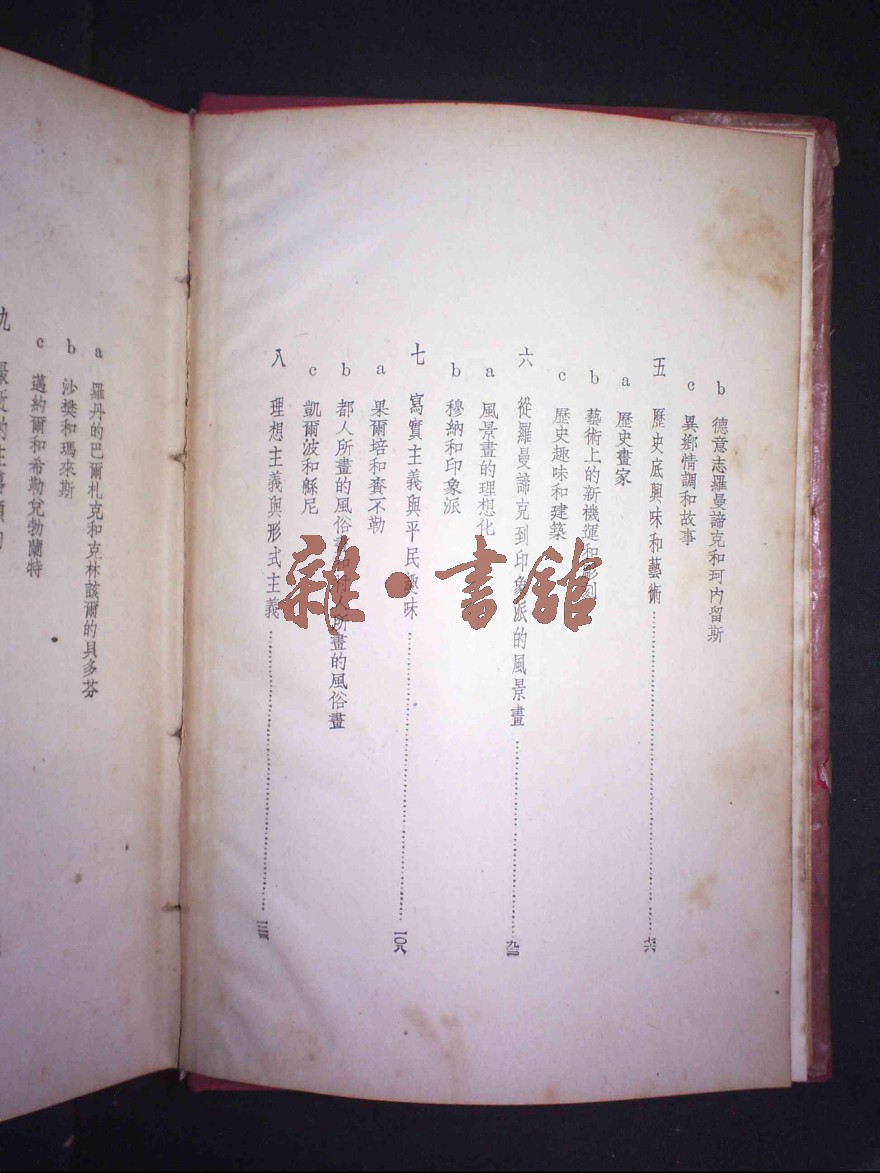 b 德意志羅曼諦克和珂內留斯
c 異鄉情調和故事
五 歷史底興味和藝術 七六
a 歷史畫家
b 藝術上的新機運和彫刻
c 歷史趣味和建築
六 從羅曼諦克到印象派的風景畫
a 風景畫的理想化
b 穆納和印象派
七 寫實主義與平民趣味 一〇八
a 果爾培和賚不勒
b 都人所畫的風俗畫和村人所畫的風俗畫
c 凱爾波和穌尼
八 理想主義與形式主義
a 羅丹的巴爾札克和克林該爾的貝多芬
b 沙樊和瑪來斯
c 邁約爾和希勒兌勃蘭特
九
雜·書館